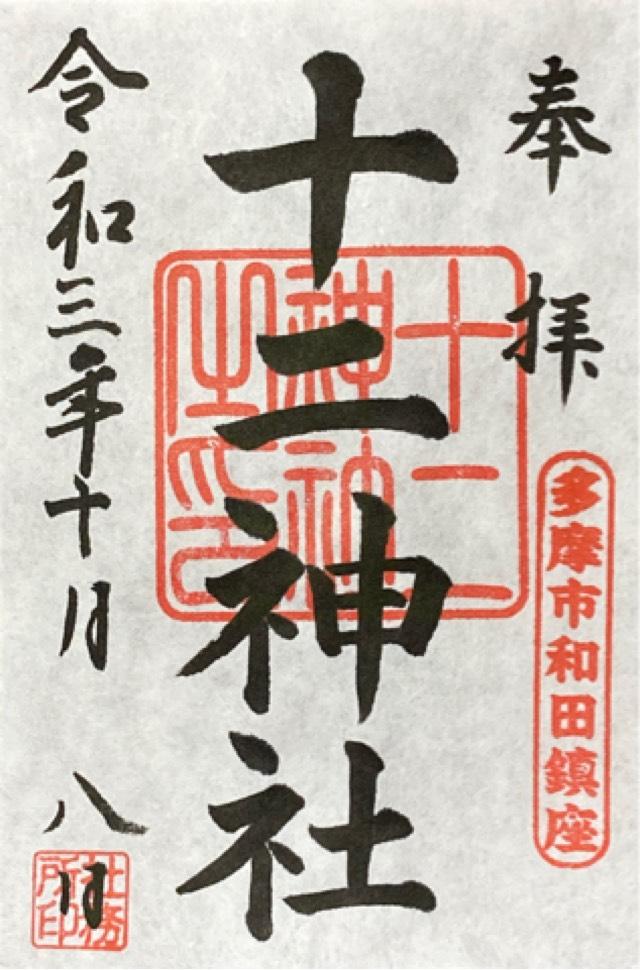 奉拝
多摩市和田鎮座
十二神社
十二神社之印
令和三年十月八日
社務所印